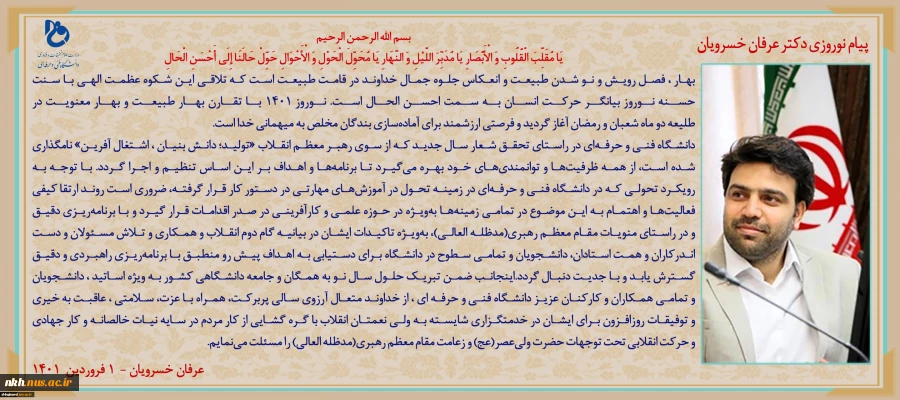 بسم الله الرحمن الرحیم
وزارت علوم تحقیقات و فناوری
دانشگاه فنی و حرفه‌ای
پیام نوروزی دکتر عرفان خسرویان
یَا مُقَلِّبَ الْقُلُوبِ وَ الْأَبْصَارِ یَا مُدَبِّرَ اللَّیْلِ وَ النَّهَارِ یَا مُحَوِّلَ الْحَوْلِ وَ الْأَحْوَالِ حَوِّلْ حَالَنَا إِلَى أَحْسَنِ الْحَالِ
بهار، فصل رویش و نو شدن طبیعت و انعکاس جلوه جمال خداوند در قامت طبیعت است که تلاقی این شکوه عظمت الهی با سنت
حسنه نوروز بیانگر حرکت انسان به سمت احسن الحال است. نوروز ۱۴۰۱ با تقارن بهار طبیعت و بهار معنویت در
طلیعه دو ماه شعبان و رمضان آغاز گردید و فرصتی ارزشمند برای آماده‌سازی بندگان مخلص به میهمانی خدا است.
دانشگاه فنی و حرفه‌ای در راستای تحقق شعار سال جدید که از سوی رهبر معظم انقلاب «تولید؛ دانش بنیان ، اشتغال آفرین» نامگذاری
شده است، از همه ظرفیت‌ها و توانمندی‌های خود بهره می‌گیرد تا برنامه‌ها و اهداف بر این اساس تنظیم و اجرا گردد. با توجه به
رویکرد تحولی که در دانشگاه فنی و حرفه‌ای در زمینه تحول در آموزش‌های مهارتی در دستور کار قرار گرفته، ضروری است روند ارتقا کیفی
فعالیت‌ها و اهتمام به این موضوع در تمامی زمینه‌ها به‌ویژه در حوزه علمی و کارآفرینی در صدر اقدامات قرار گیرد و با برنامه‌ریزی دقیق
و در راستای منویات مقام معظم رهبری(مدظله العالی)، به‌ویژه تاکیدات ایشان در بیانیه گام دوم انقلاب و همکاری و تلاش مسئولان و دست
اندرکاران و همت استادان، دانشجویان و تمامی سطوح در دانشگاه برای دستیابی به اهداف پیش رو منطبق با برنامه‌ریزی راهبردی و دقیق
گسترش یابد و با جدیت دنبال گردد.اینجانب ضمن تبریک حلول سال نو به همگان و جامعه دانشگاهی کشور به ویژه اساتید ، دانشجویان
و تمامی همکاران و کارکنان عزیز دانشگاه فنی و حرفه ای ، از خداوند متعال آرزوی سالی پربرکت، همراه با عزت، سلامتی ، عاقبت به خیری
و توفیقات روزافزون برای ایشان در خدمتگزاری شایسته به ولی نعمتان انقلاب با گره گشایی از کار مردم در سایه نیات خالصانه و کار جهادی
و حرکت انقلابی تحت توجهات حضرت ولی‌عصر(عج) و زعامت مقام معظم رهبری(مدظله العالی) را مسئلت می‌نمایم.
عرفان خسرویان - ۱ فروردین ۱۴۰۱
nkh.nus.ac.ir